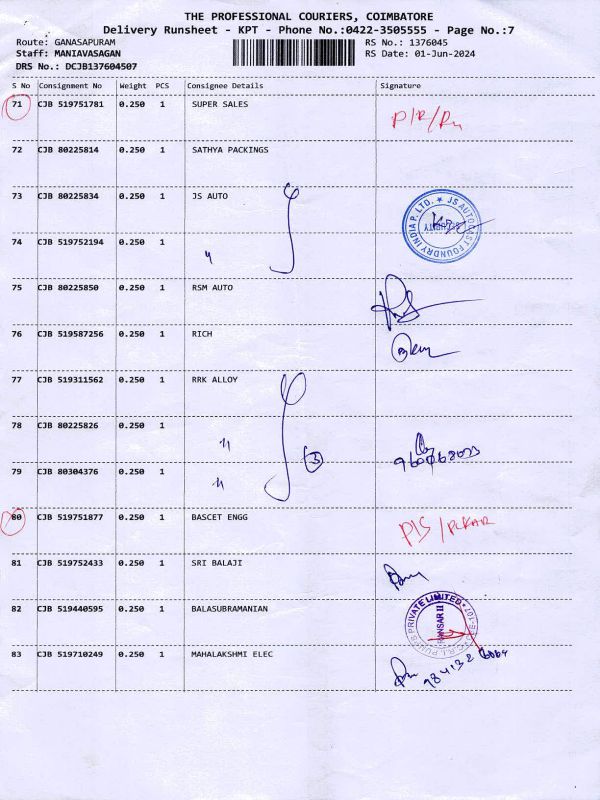 THE PROFESSIONAL COURIERS, COIMBATORE
Delivery Runsheet - KPT - Phone No.:0422-3505555 - Page No.:7
Route: GANASAPURAM RS No.: 1376045
Staff: MANIAVASAGAN RS Date: 01-Jun-2024
DRS No.: DCJB137604507
S No Consignment No Weight PCS Consignee Details Signature
71 CJB 519751781 0.250 1 SUPER SALES
72 CJB 80225814 0.250 1 SATHYA PACKINGS
73 CJB 80225834 0.250 1 JS AUTO
JS AUTOCAST FOUNDRY INDIA P. LTD. ★
SECURITY
74 CJB 519752194 0.250 1 "
75 CJB 80225850 0.250 1 RSM AUTO
76 CJB 519587256 0.250 1 RICH
77 CJB 519311562 0.250 1 RRK ALLOY
78 CJB 80225826 0.250 1 "
79 CJB 80304376 0.250 1 " 3
80 CJB 519751877 0.250 1 BASCET ENGG
81 CJB 519752433 0.250 1 SRI BALAJI
82 CJB 519440595 0.250 1 BALASUBRAMANIAN
C.R.I. PUMPS PRIVATE LIMITED
83 CJB 519710249 0.250 1 MAHALAKSHMI ELEC